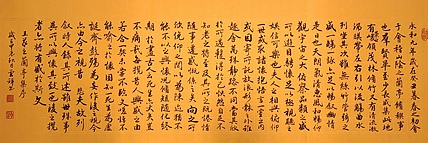 永和九年歲在癸丑暮春之初會
于會稽山陰之蘭亭修禊事
也群賢畢至少長咸集此地
有崇山峻領茂林修竹又有清流激
湍映帶左右引以為流觴曲水
列坐其次雖無絲竹管弦之
盛一觴一詠亦足以暢敘幽情
是日也天朗氣清惠風和暢仰
觀宇宙之大俯察品類之盛
所以遊目騁懷足以極視聽之
娛信可樂也夫人之相與俯仰
一世或取諸懷抱悟言一室之內
或因寄所託放浪形骸之外雖
趣舍萬殊靜躁不同當其欣
於所遇暫得於己快然自足不
知老之將至及其所之既惓情
隨事遷感慨係之矣向之所
欣俛仰之間以為陳迹猶不
能不以之興懷況修短隨化終
期於盡古人云死生亦大矣豈
不痛哉每攬昔人興感之由
若合一契未嘗不臨文嗟悼不
能喻之於懷固知一死生為虛
誕齊彭殤為妄作後之視今
亦由今之視昔悲夫故列
敘時人錄其所述雖世殊事
異所以興懷其致一也後之攬
者亦將有感於斯文
王羲之蘭亭集序